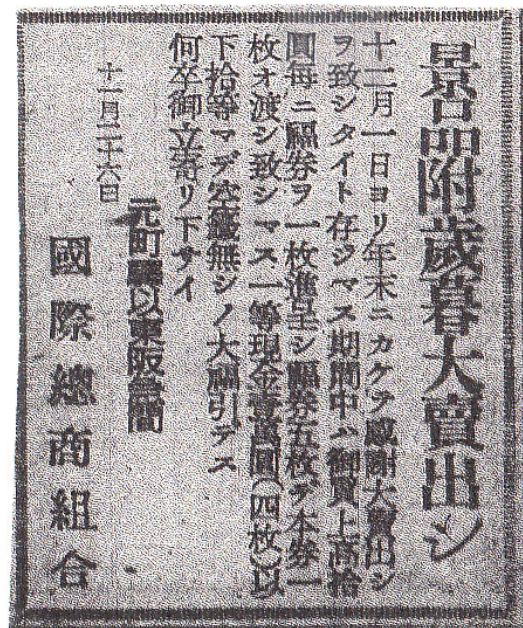 景品附歳暮大賣出シ
十二月一日ヨリ年末ニカケテ感謝大賣出シ
ヲ致シタイト存ジマス期間中ハ御買上高拾
圓每ニ福券ヲ一枚進呈シ福券五枚デ本券一
枚オ渡シ致シマス一等現金壹萬圓(四枚)以
下拾等マデ空籤無シノ大福引デス
何卒御立寄リ下サイ
十一月二十六日
元町驛以東阪急間
國際總商組合